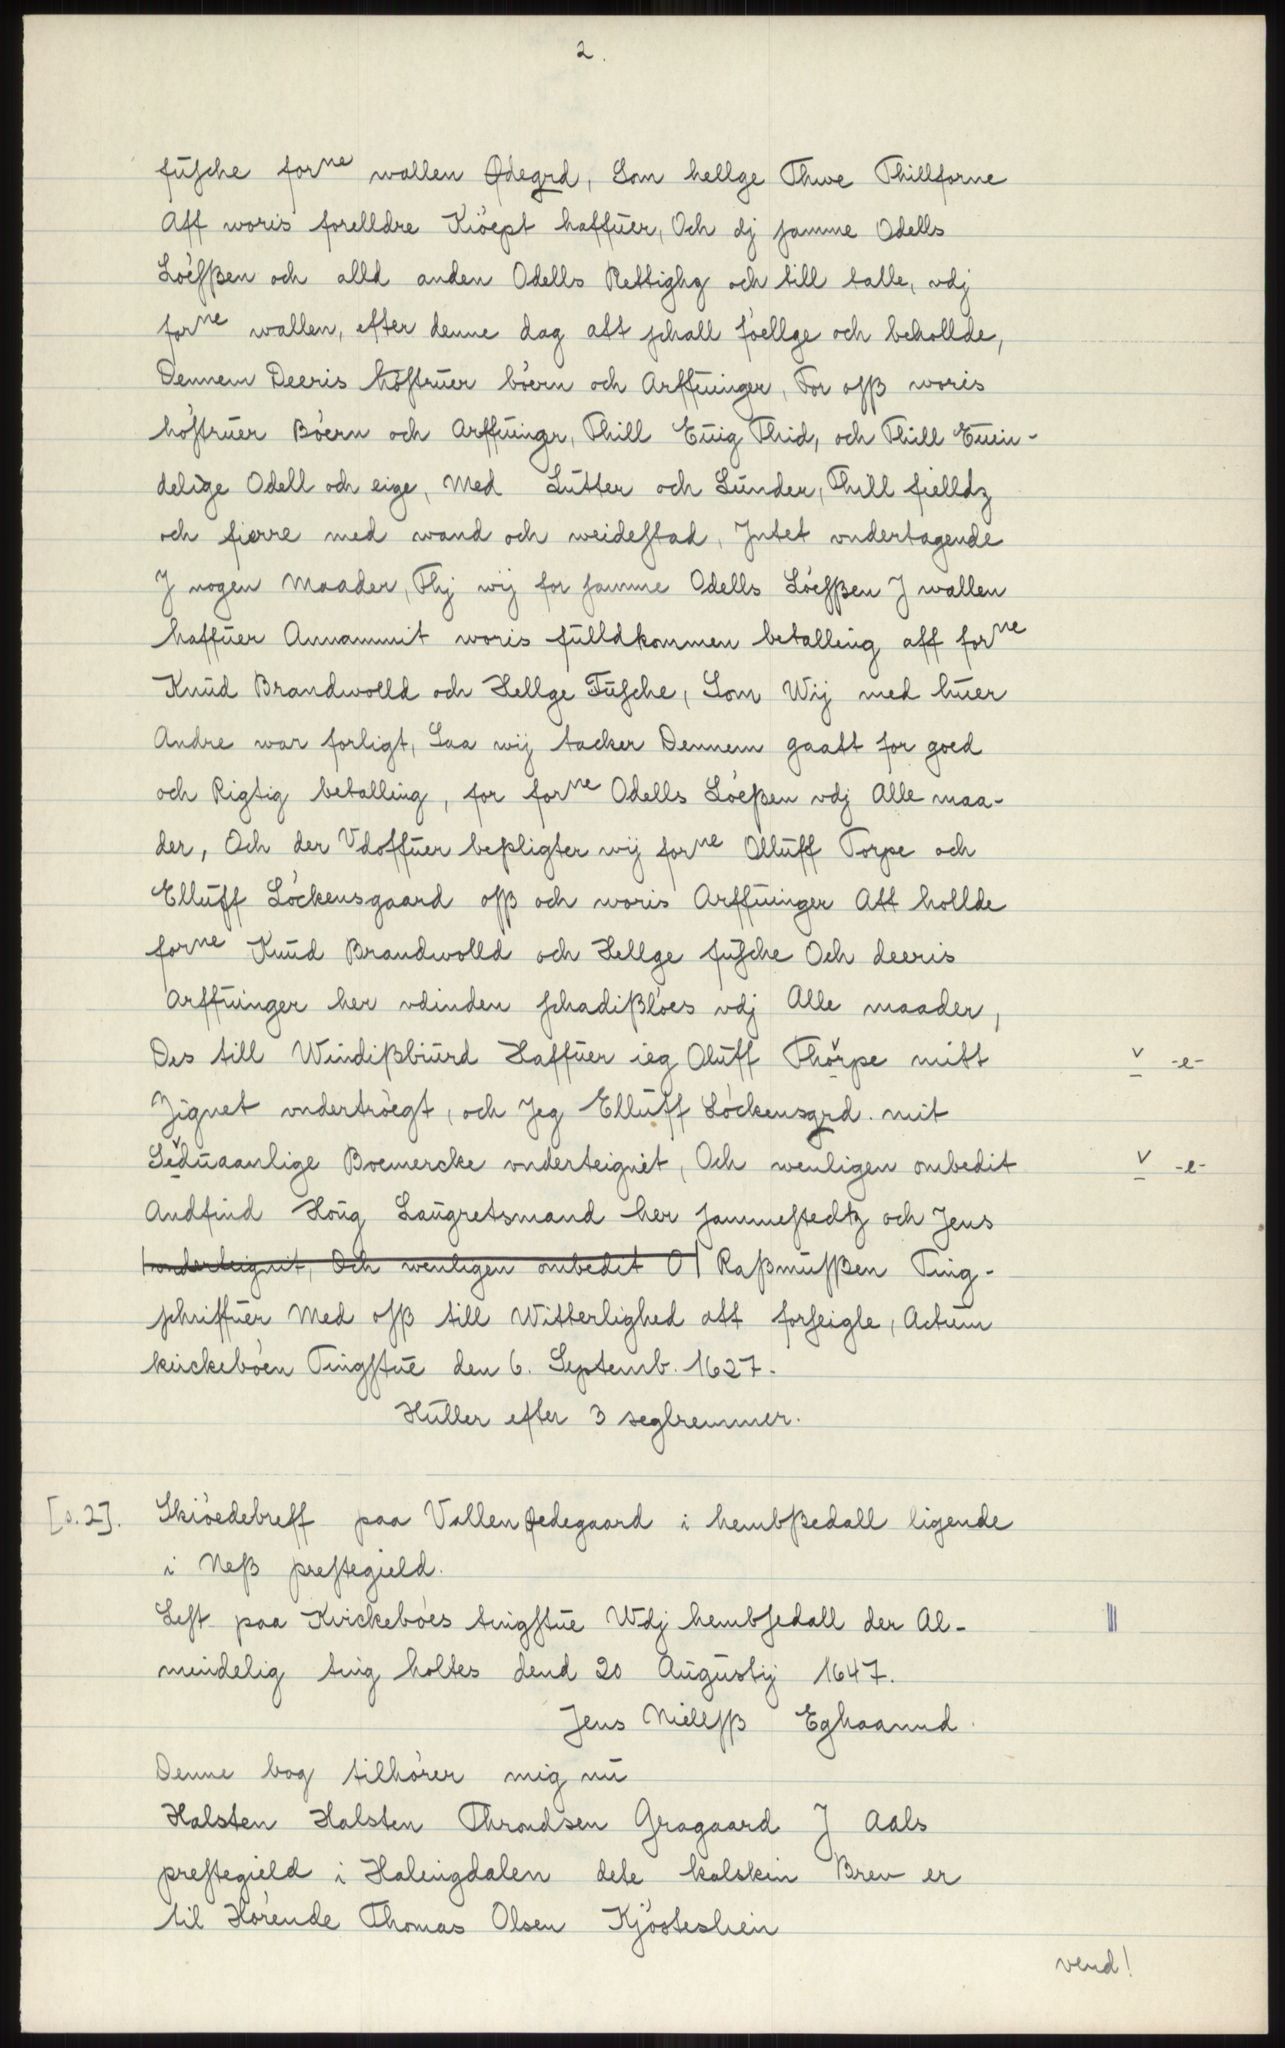 2.
fusche for^ne wallen Ødegrd, Som hellge Thwe Thillforne
Aff woris forelldre Kiöept haffuer, Och dj samme Odells
Löeſßen och alld anden Odells Rettighg och till talle, vdj
for^ne wallen, efter denne dag att schall föellge och behollde,
Dennem Deeris höstruer böern och Arffuinger, For oſß woris
höstruer Böern och Arffuingr, Thill Euig Thid, och Thill Euin-
delige Odell och eige, Med Lutter och Lunder, Thill fielldz
och fierre med wand och weidestad, Intet vndertagende
J nogen Maader, Thj wij for samme Odells Löeſßen J wallen
haffuer Annammit woris fulldkommen betalling aff for^ne
Knud Brandwolld och Hellge Fusche, Som Wij med huer
Andre war forligt, Saa wij tacker Dennem gaatt for goed
och Rigtig betalling, for for^ne Odells Löeßen vdj Alle maa-
der, Och der Vdoffuer bepligter wij for^ne Olluff Torpe och
Elluff Löckensgaard oſß och woris Arffuinger Att hollde
for^ne Knud Brandwolld och Hellge fusche Och deeris
Arffuinger her vdinden schadißlöes vdj Alle maader,
Des till Windißbiurd Haffuer ieg Oluff Thorpe mitt v -e-
Zignet vndertröegt, och Jeg Elluff Löckensgrd. mit
Seduaanlige Boemercke vnderteignet, Och wenligen ombedit v -e-
Andfind Houg Laugretsmand her sammestedtz och Jens
vnderteignit, Och wenligen ombedit O Raßmuſßen Ting-
schriffuer Med oſß till Witterlighed att forseigle, Actum
kirckeböen Tingstue den 6. Septemb. 1627.
Huller efter 3 seglremmer.
[s.2]. Skiöedebreff paa Vallen Ødegaard i hembßedall ligende
i Neß prestegield.
Lest paa Kirckeböes tingstue Wdj hembsedall der Al-
mindelig ting holtes dend 20 Augustij 1647.
Jens Nielſß Eghaannd.
Denne bog tilhörer mig nu
Halsten Halsten Throndsen Gragaard J Aals
prestegield i Halingdalen dete kalskin Brev er
til Hörende Thomas Olsen Kjösteslien
vend!